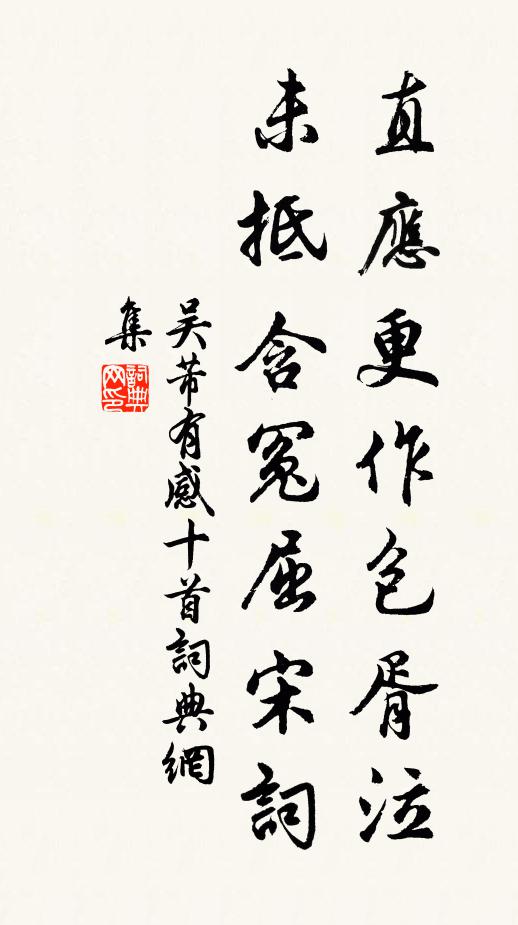 直應更作包胥泣
未抵含冤屈宋詞
吴芾有感十首詞典網
集
詞典网印